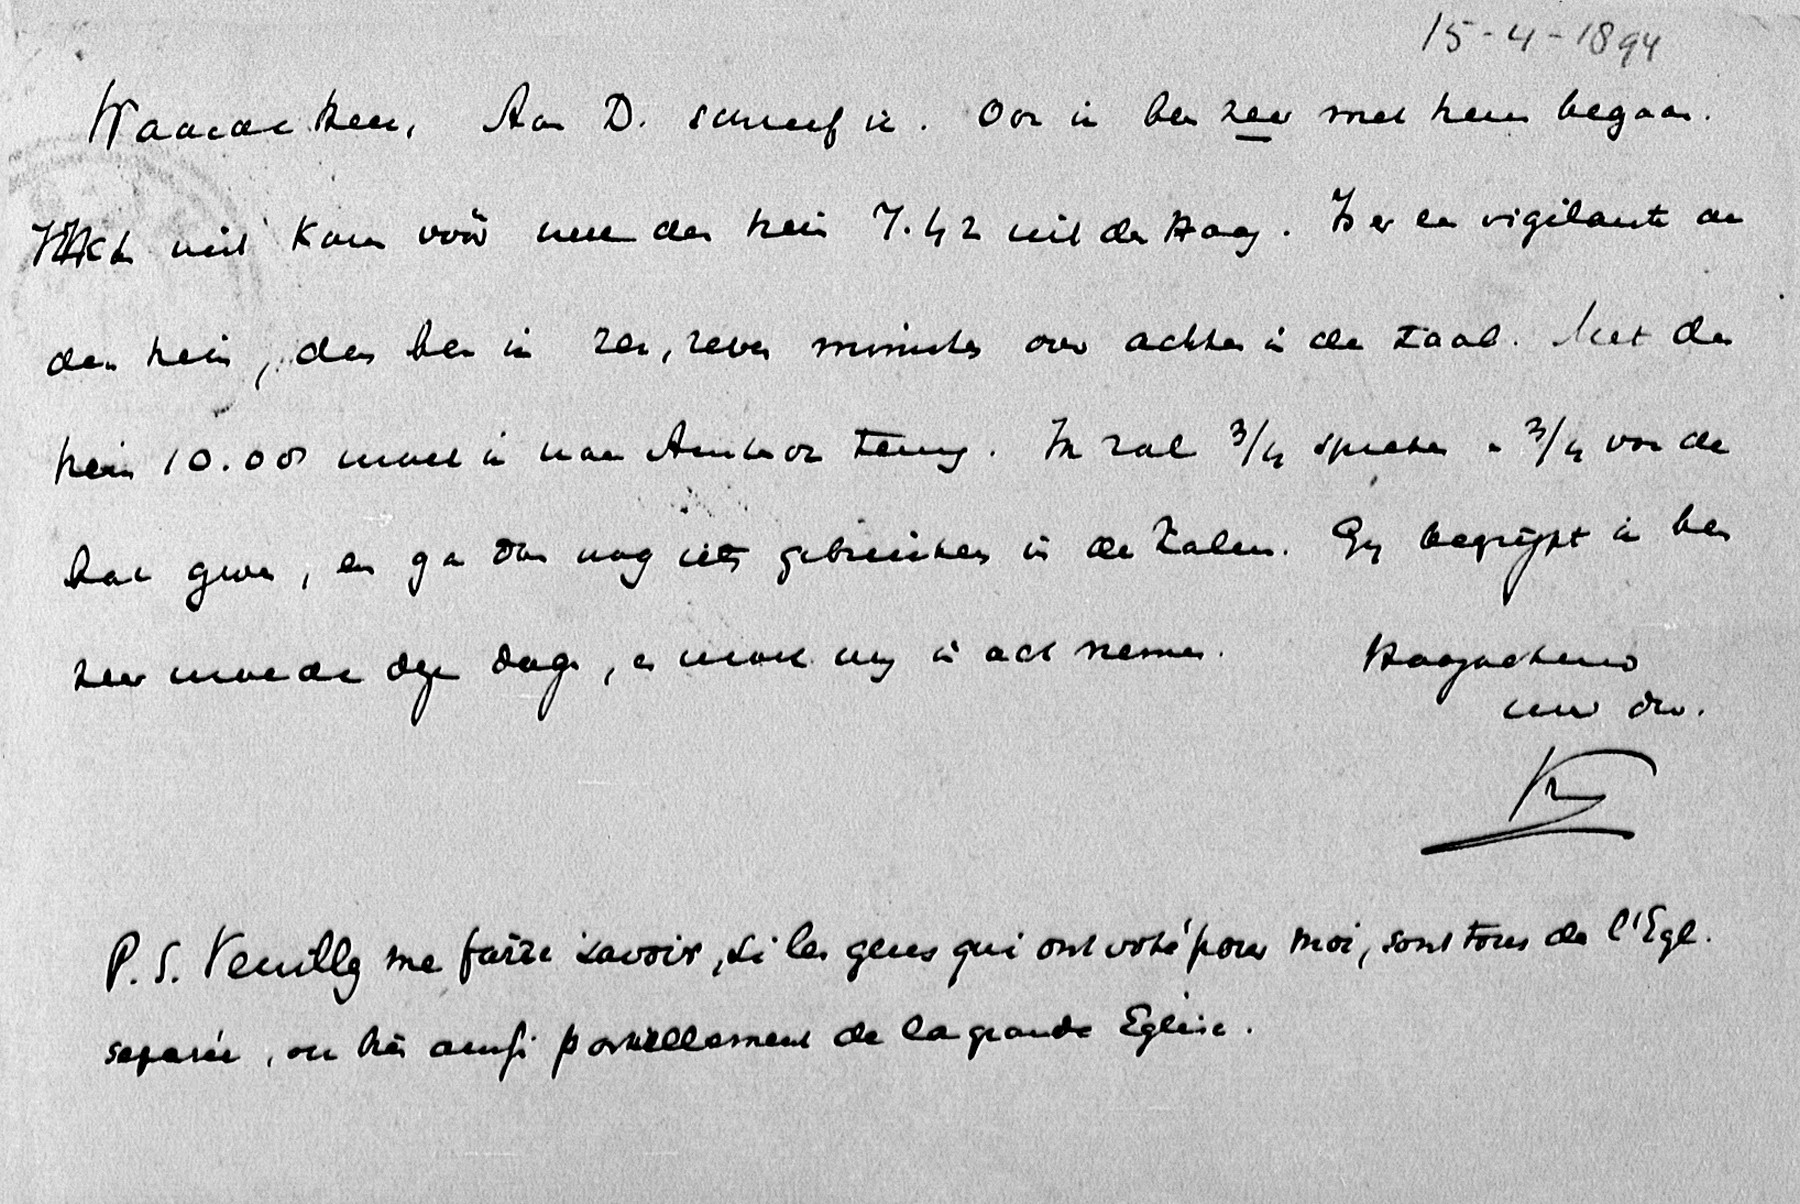 15-4-1894
Waarde Heer, Aan D. schreef ik. Ook ik ben zeer met hem begaan.
niet kom vóór met den trein 7.42 uit den Haag. Is er een vigilante aan
den trein, dan ben ik zes, zeven minuten over achten in de zaal. Met den
trein 10.08 moet ik naar Amsterdam terug. Ik zal 3/4 spreken en 3/4 van de
gwen, en ga dan nog iets gebruiken in de zalen. Gij begrijpt ik ben
zeer moede deze dage, en moet mij in acht nemen. Hoogachtend
uw dw.
P.S. Veuillez me faire savoir, si les gens qui ont voté pour moi, sont tous de l'Egl.
separée, ou bien aussi partiellement de la grande Eglise.